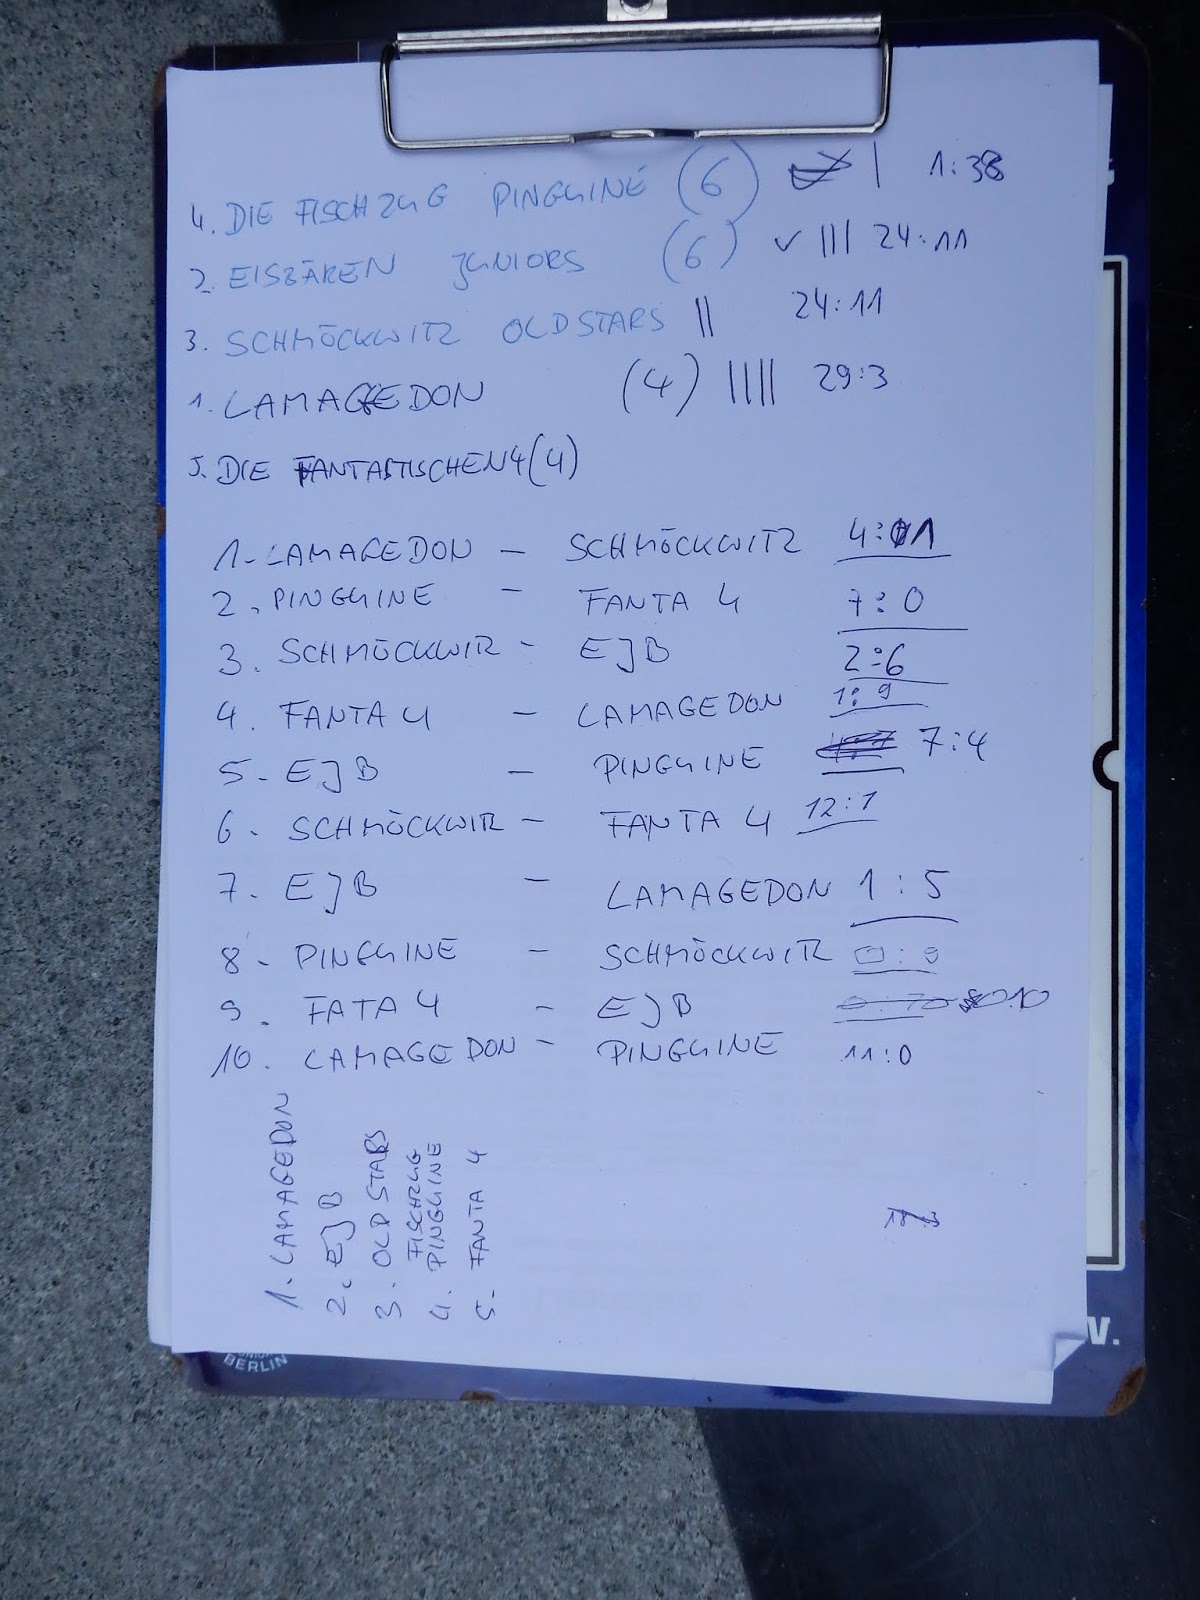 4. DIE FISCHZUG PINGUINE (6) | 1:38
2. EISBÄREN JUNIORS (6) ✓ ||| 24:11
3. SCHMÖCKWITZ OLDSTARS || 24:11
1. LAMAGEDON (4) |||| 29:3
5. DIE FANTASTISCHEN4 (4)
1. LAMAGEDON - SCHMÖCKWITZ 4:1
2. PINGUINE - FANTA 4 7:0
3. SCHMÖCKWITZ - EJB 2:6
4. FANTA 4 - LAMAGEDON 1:9
5. EJB - PINGUINE 7:4
6. SCHMÖCKWITZ - FANTA 4 12:1
7. EJB - LAMAGEDON 1:5
8. PINGUINE - SCHMÖCKWITZ 0:9
9. FATA 4 - EJB 0:10
10. LAMAGEDON - PINGUINE 11:0
1. LAMAGEDON
2. EJB
3. OLD STARS
4. FISCHZUG PINGUINE
5. FANTA 4
BERLIN
V.